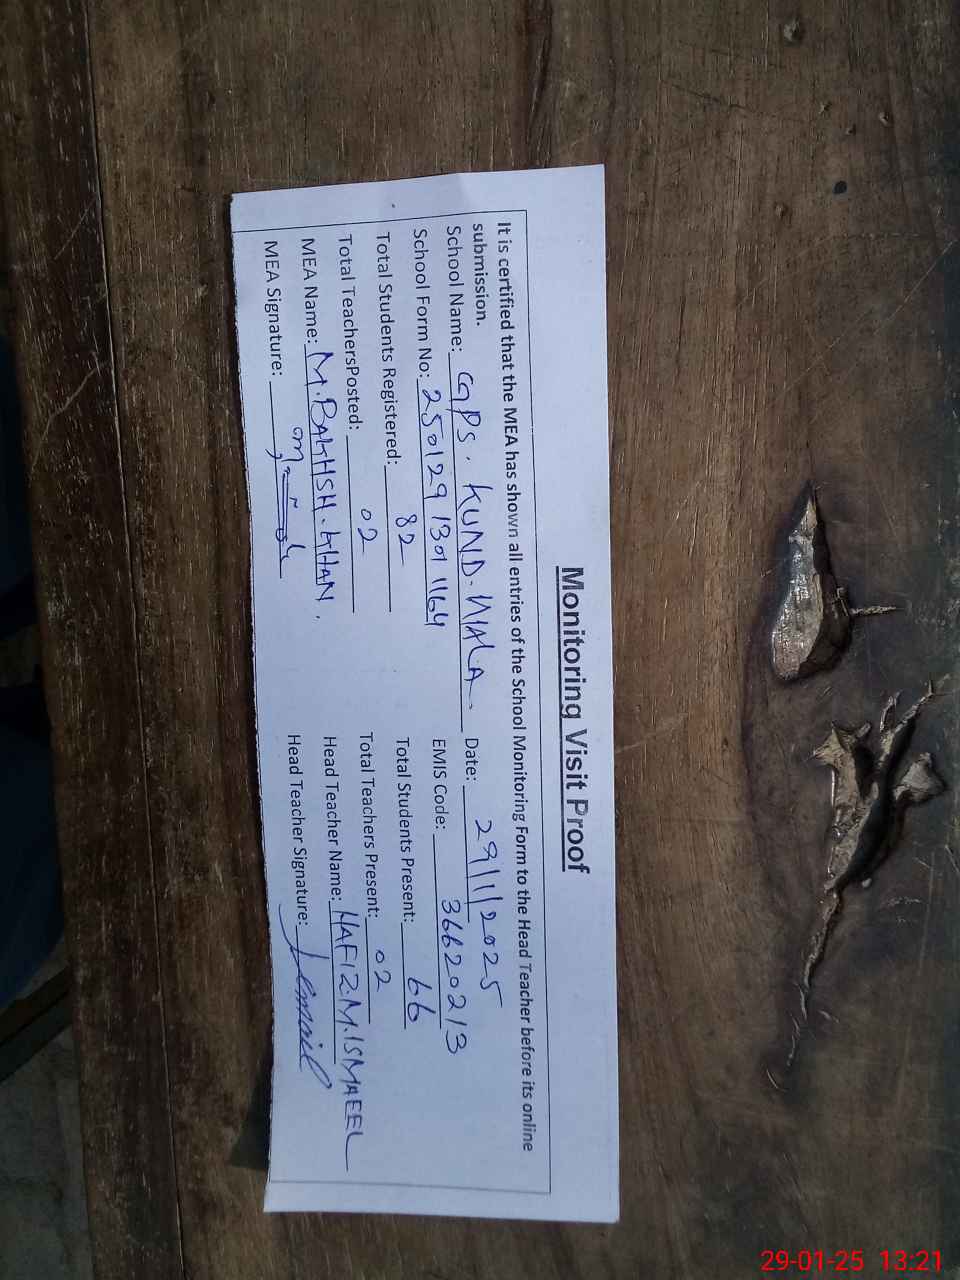 Monitoring Visit Proof
It is certified that the MEA has shown all entries of the School Monitoring Form to the Head Teacher before its online
submission.
School Name: GPS. KUND. NIALA. Date: 29/1/2025
School Form No: 250129 1301 1164 EMIS Code: 36620213
Total Students Registered: 82 Total Students Present: 66
Total TeachersPosted: 02 Total Teachers Present: 02
MEA Name: M. BAKHSH. KHAN. Head Teacher Name: HAFIZ. M. ISMAEEL
MEA Signature: Head Teacher Signature: Ismaeel
29-01-25 13:21